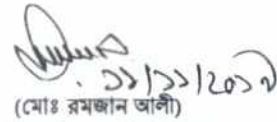 ১১/১১/২০১৭
(মোঃ রমজান আলী)